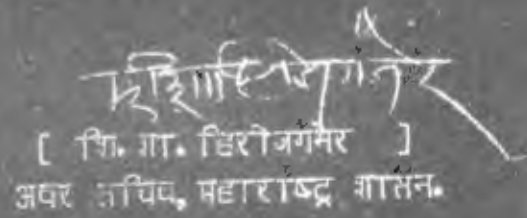 [ शि. गा. हिरोजगमेर ]
अवर सचिव, महाराष्ट्र शासन.